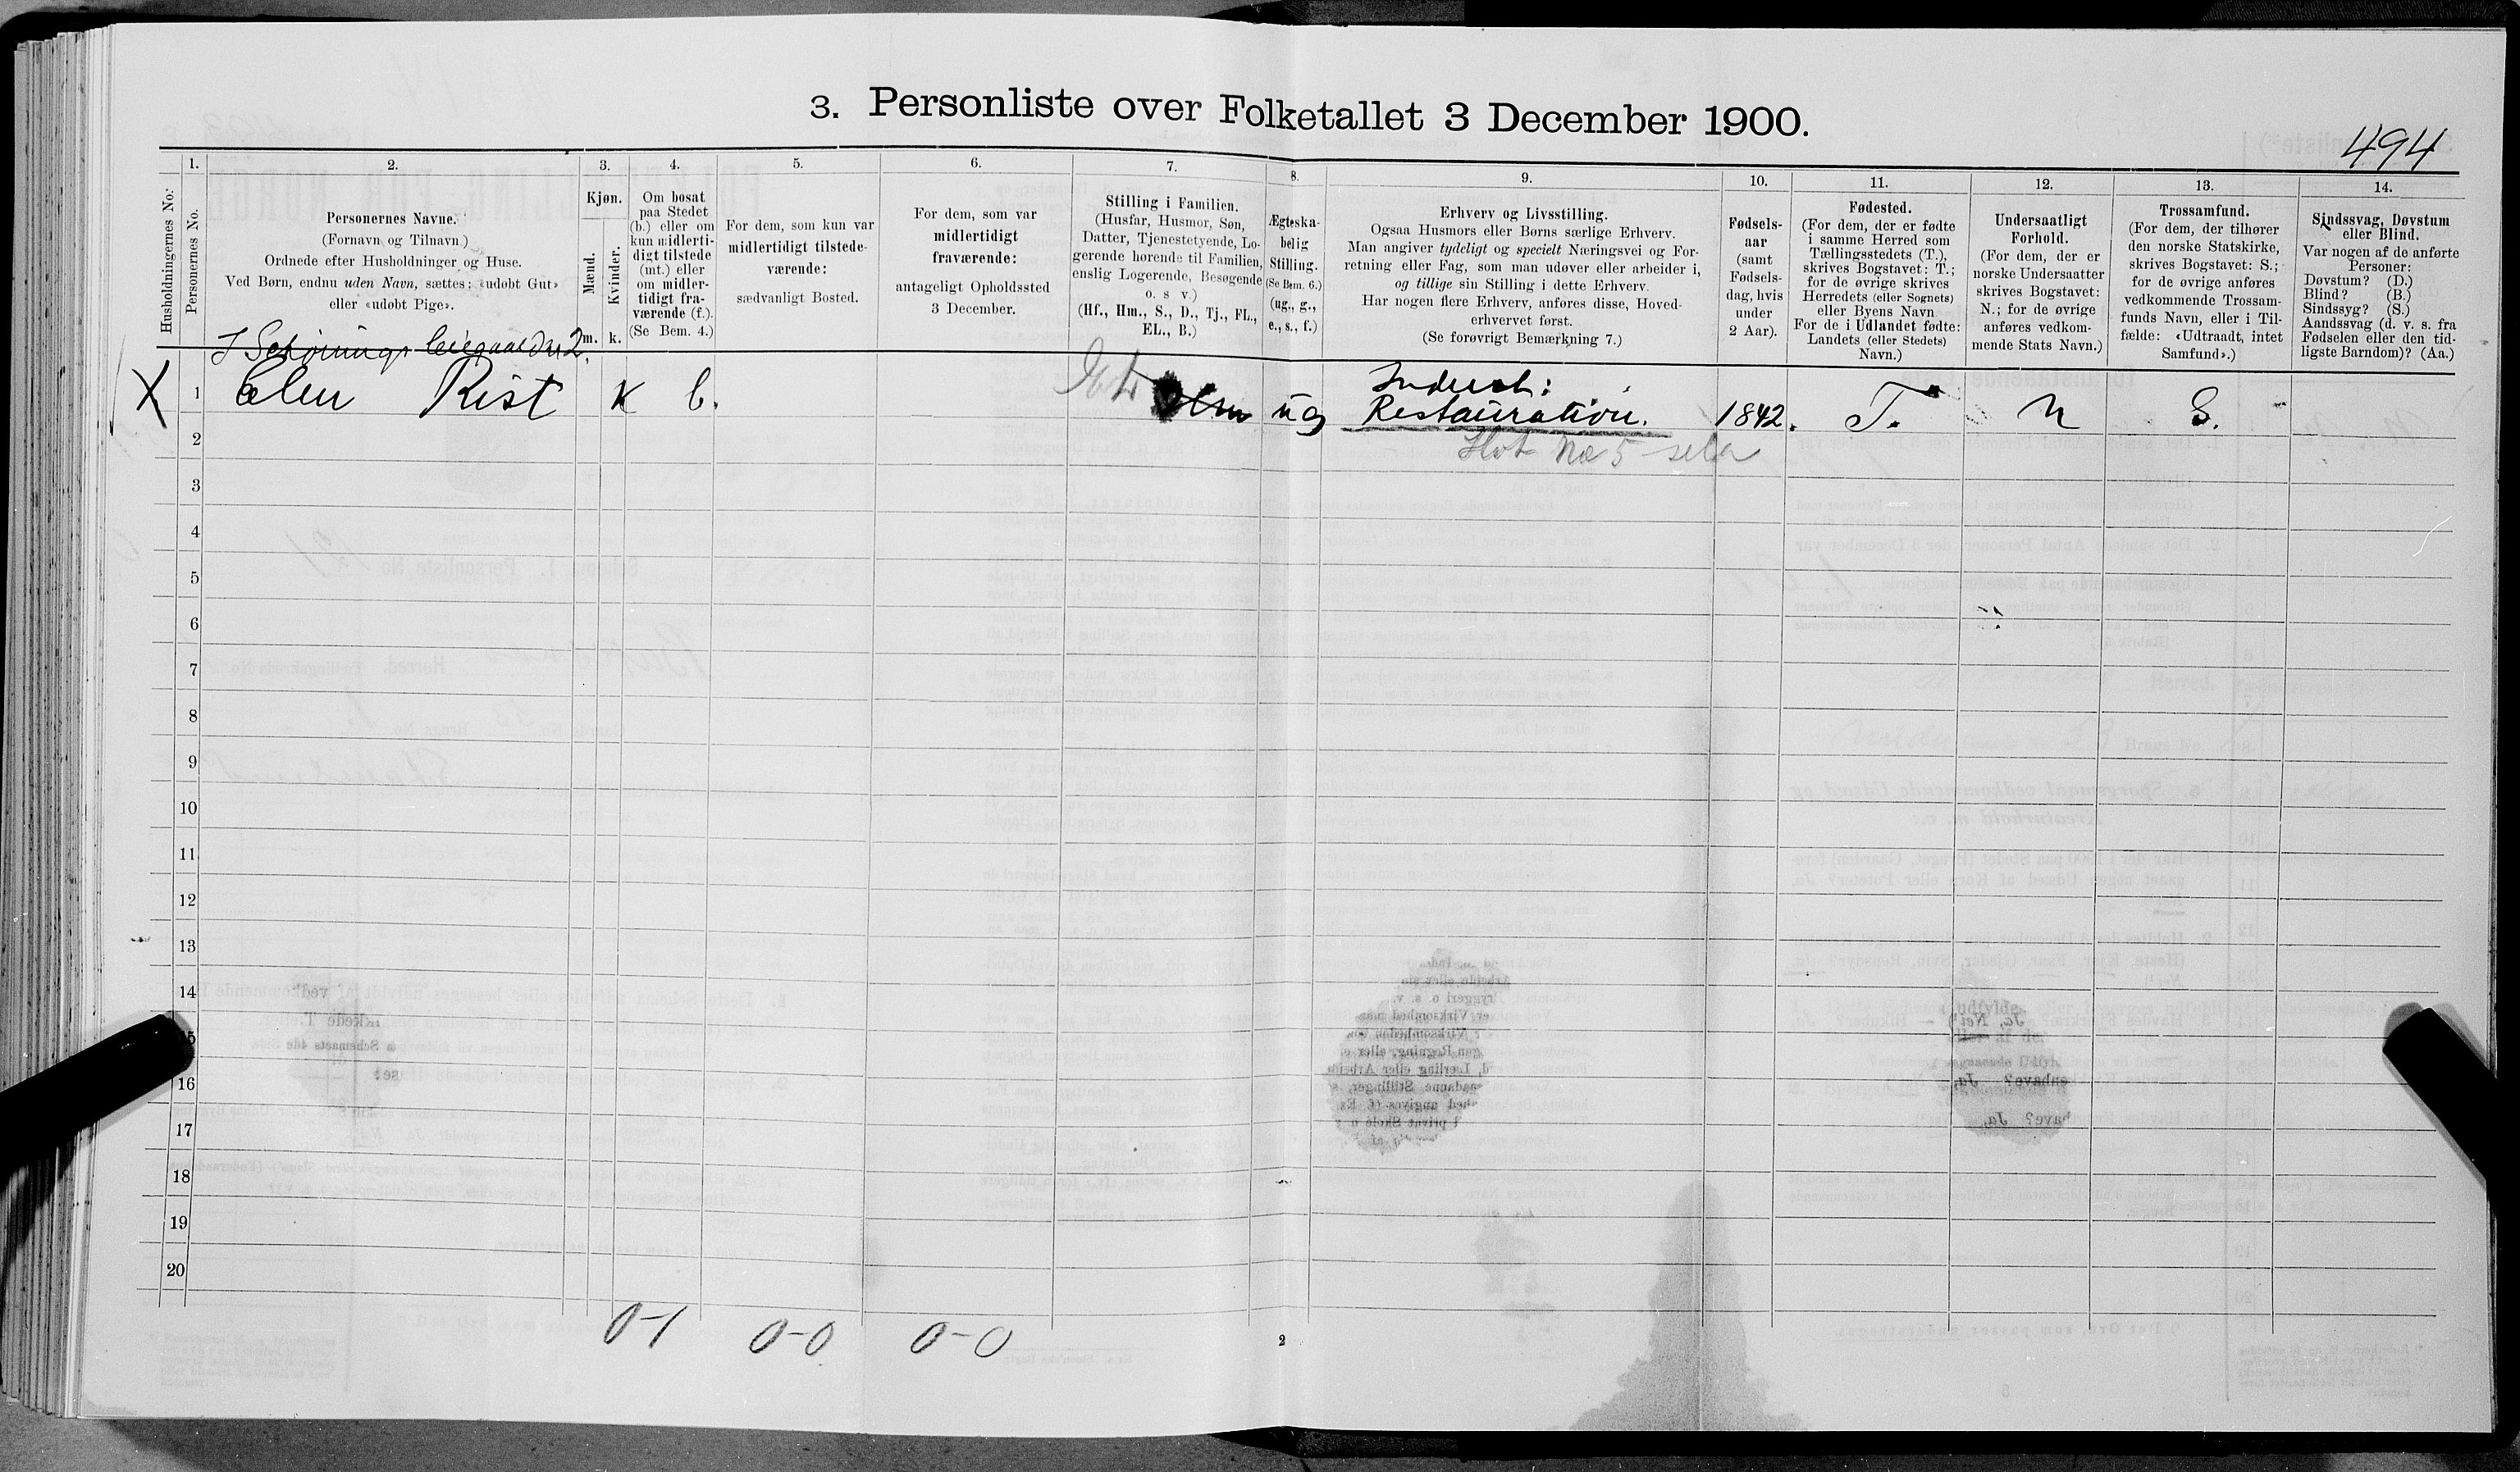 3. Personliste over Folketallet 3 December 1900.
494
Husholdningernes No.
1.
Personernes No.
2.
Personernes Navne.
(Fornavn og Tilnavn.)
Ordnede efter Husholdninger og Huse.
Ved Børn, endnu uden Navn, sættes: «udøbt Gut»
eller «udøbt Pige».
3.
Kjøn.
Mænd.
Kvinder.
m.
k.
4.
Om bosat
paa Stedet
(b.) eller om
kun midlerti-
digt tilstede
(mt.) eller
om midler-
tidigt fra-
værende (f.).
(Se Bem. 4.)
5.
For dem, som kun var
midlertidigt tilstede-
værende:
sædvanligt Bosted.
6.
For dem, som var
midlertidigt
fraværende:
antageligt Opholdssted
3 December.
7.
Stilling i Familien.
(Husfar, Husmor, Søn,
Datter, Tjenestetyende, Lo-
gerende hørende til Familien,
enslig Logerende, Besøgende
o. s v.)
(Hf., Hm., S., D., Tj., FL.,
EL., B.)
8.
Ægteska-
belig
Stilling.
(Se Bem. 6.)
(ug., g.,
e., s., f.)
9.
Erhverv og Livsstilling.
Ogsaa Husmors eller Børns særlige Erhverv.
Man angiver tydeligt og specielt Næringsvei og For-
retning eller Fag, som man udøver eller arbeider i,
og tillige sin Stilling i dette Erhverv.
Har nogen flere Erhverv, anføres disse, Hoved-
erhvervet først.
(Se forøvrigt Bemærkning 7.)
10.
Fødsels-
aar
(samt
Fødsels-
dag, hvis
under
2 Aar).
11.
Fødested.
(For dem, der er fødte
i samme Herred som
Tællingsstedets (T.),
skrives Bogstavet: T.;
for de øvrige skrives
Herredets (eller Sognets)
eller Byens Navn
For de i Udlandet fødte:
Landets (eller Stedets)
Navn.)
12.
Undersaatligt
Forhold.
(For dem, der er
norske Undersaatter
skrives Bogstavet:
N.; for de øvrige
anføres vedkom-
mende Stats Navn.)
13.
Trossamfund.
(For dem, der tilhører
den norske Statskirke,
skrives Bogstavet: S.;
for de øvrige anføres
vedkommende Trossam-
funds Navn, eller i Til-
fælde: «Udtraadt, intet
Samfund».)
14.
Sindssvag, Døvstum
eller Blind.
Var nogen af de anførte
Personer:
Døvstum? (D.)
Blind? (B.)
Sindssyg? (S.)
Aandssvag (d. v. s. fra
Fødselen eller den tid-
ligste Barndom)? (Aa.)
X 1 Elen Rist K b. ug Restauration. 1842. T. N S.
2
3
4
5
6
7
8
9
10
11
12
13
14
15
16
17
18
19
20
0-1 0-0 0-0
2